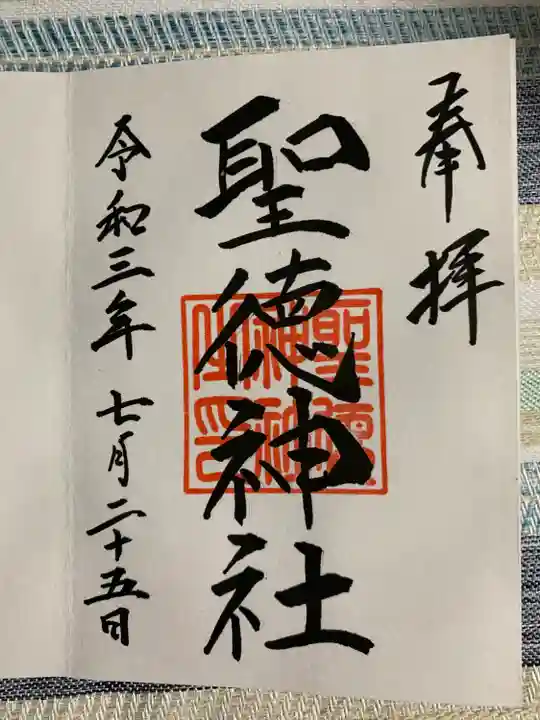 奉拝
聖徳神社
令和三年七月二十五日